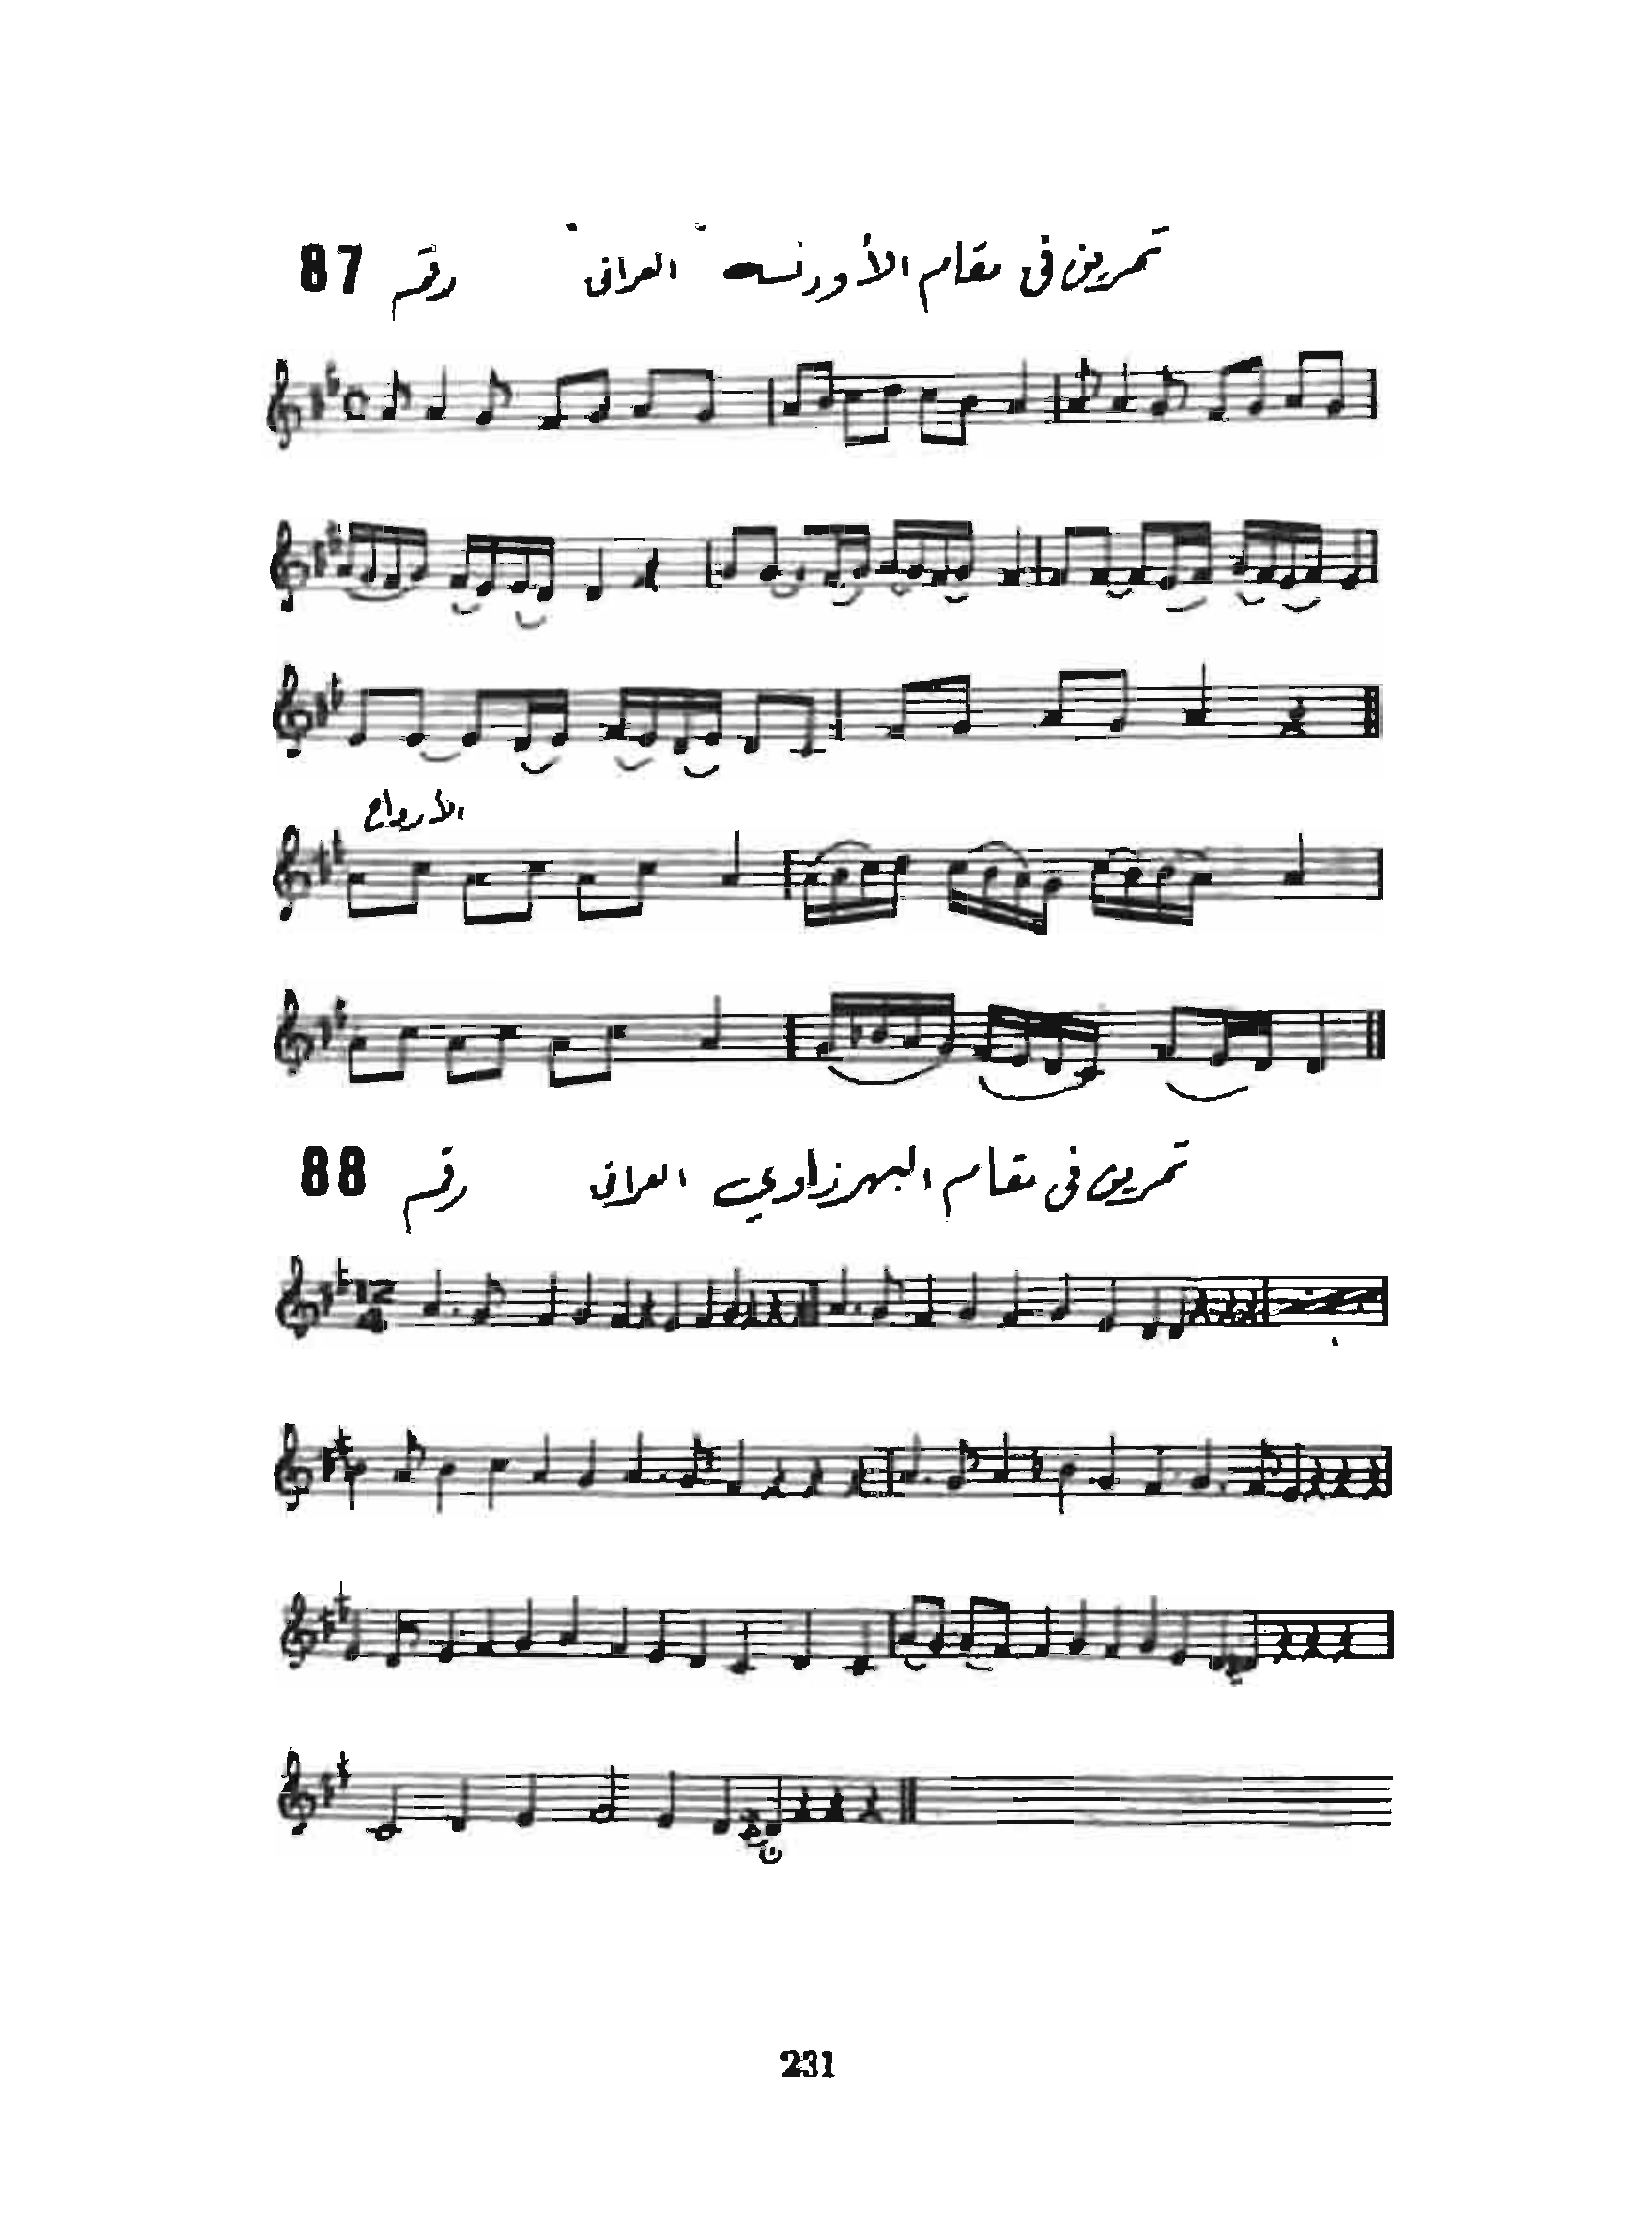 تمرين في مقام الأورفه "العراقي" رقم 87
الأرواح
تمرين في مقام البهرزاوي العراقي رقم 88
12
231